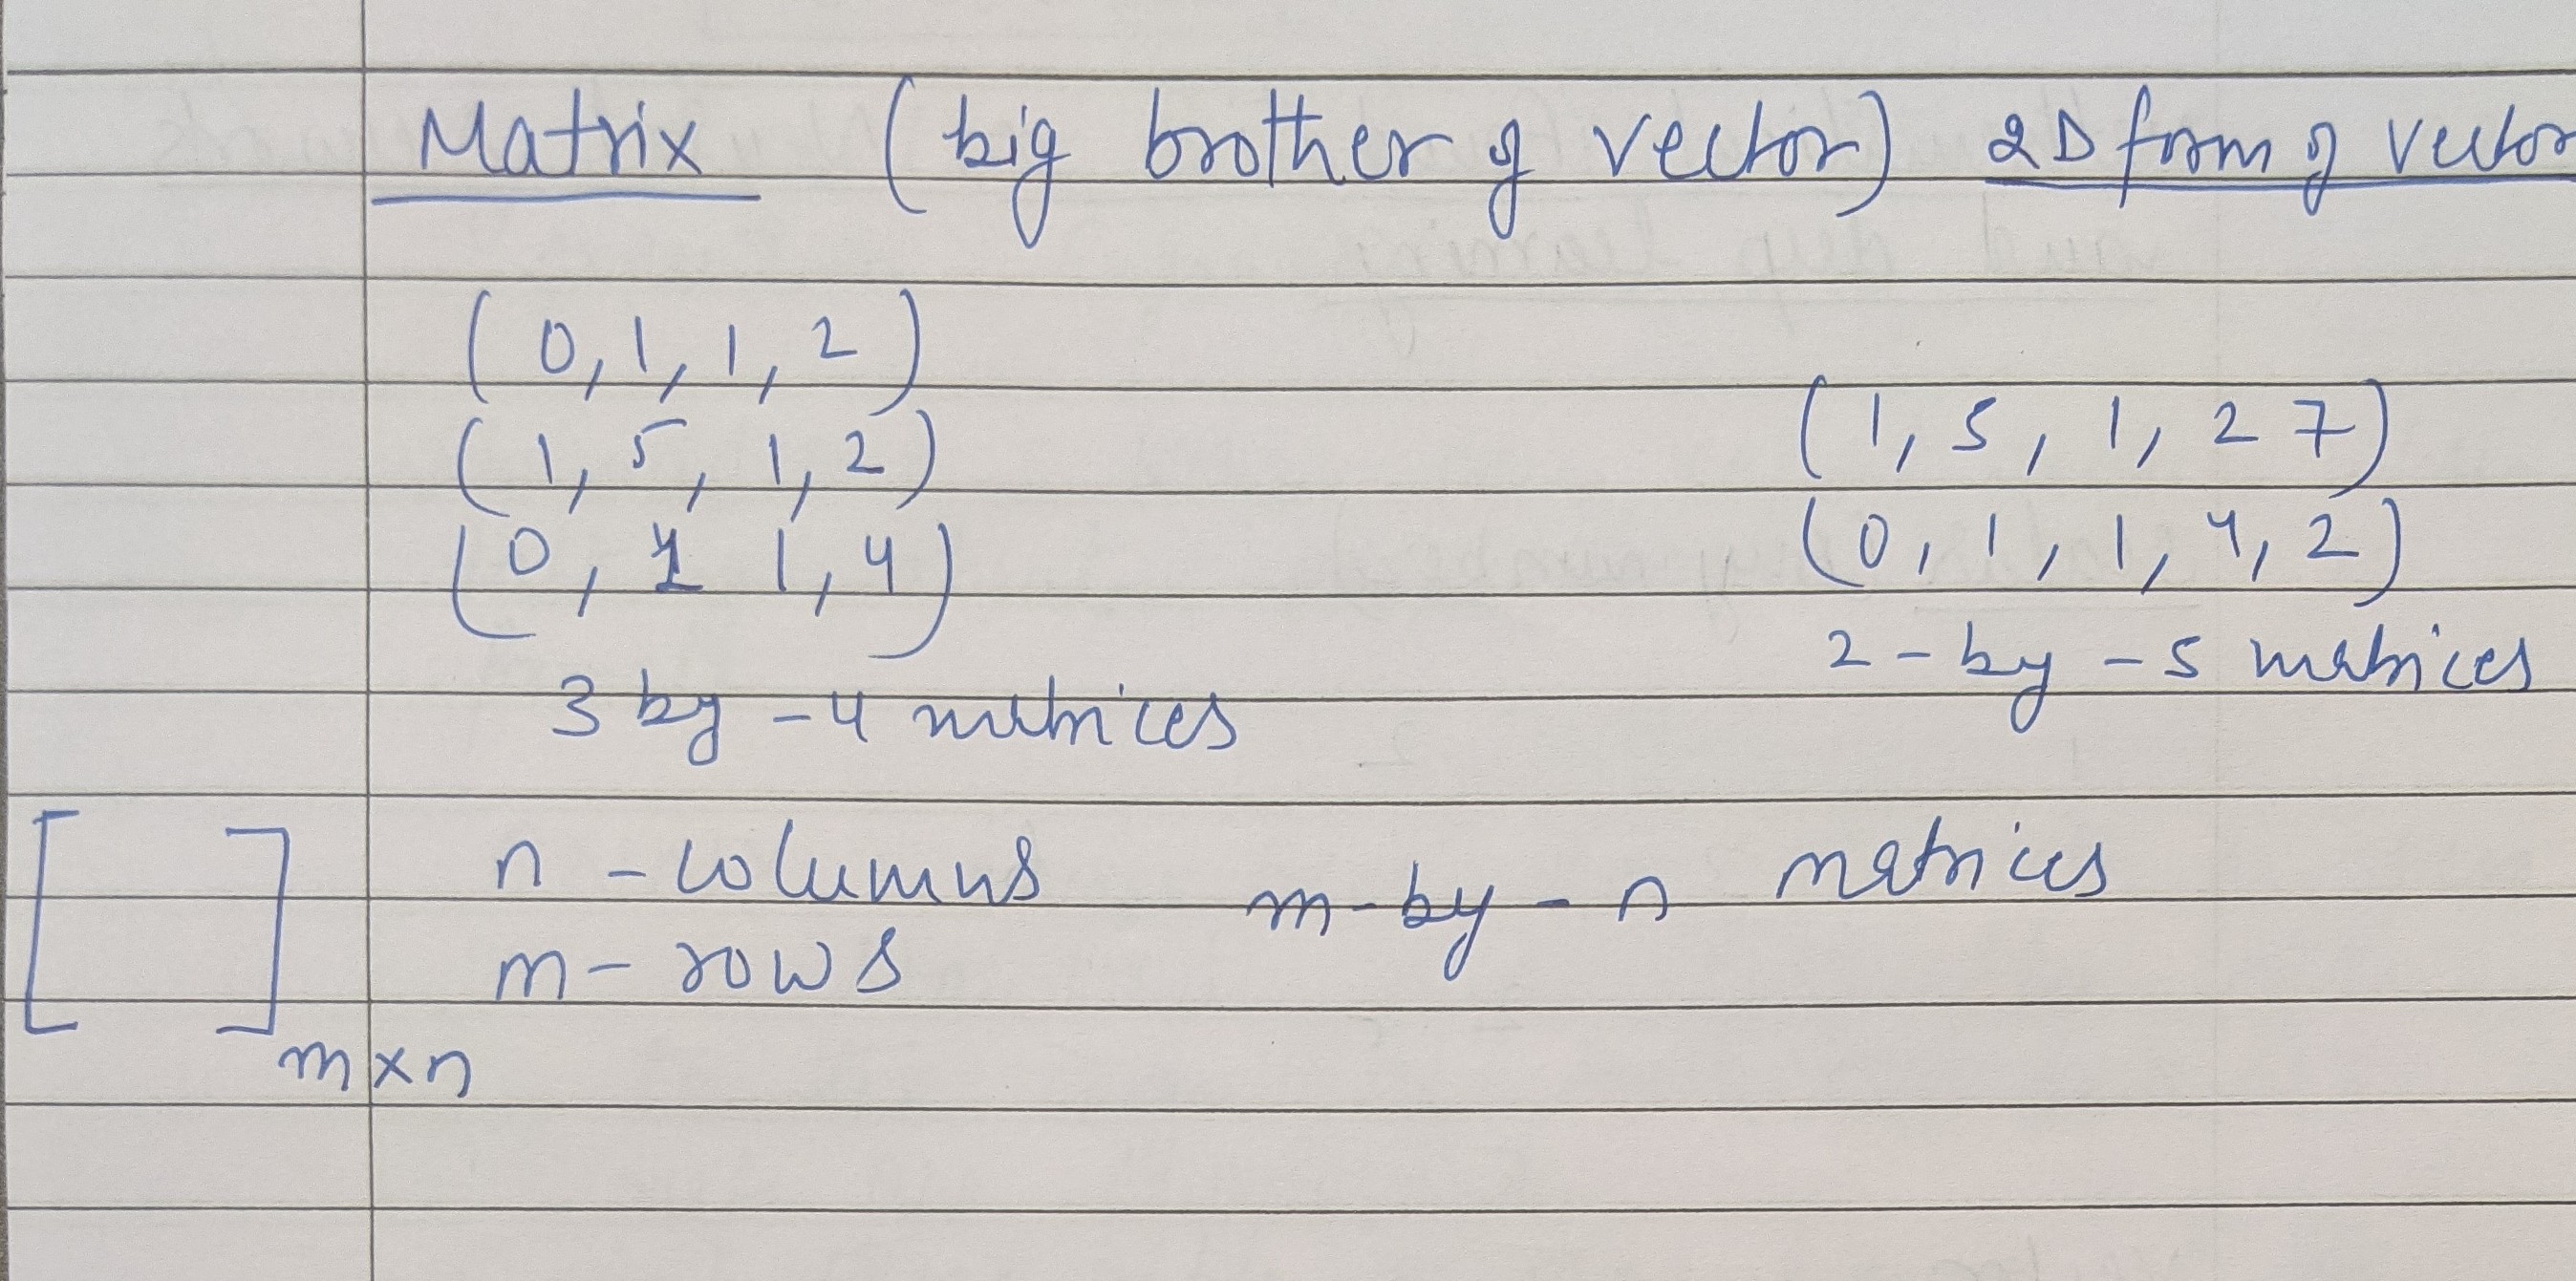 Matrix (big brother of vector) 2D form of vector
(0,1,1,2)
(1,5,1,2)
(0,1 1,4)
3 by -4 matrices
(1,5,1,2 7)
(0,1,1,4,2)
2-by-5 matrices
[ ] m×n
n - columns
m - rows
m-by-n matrices